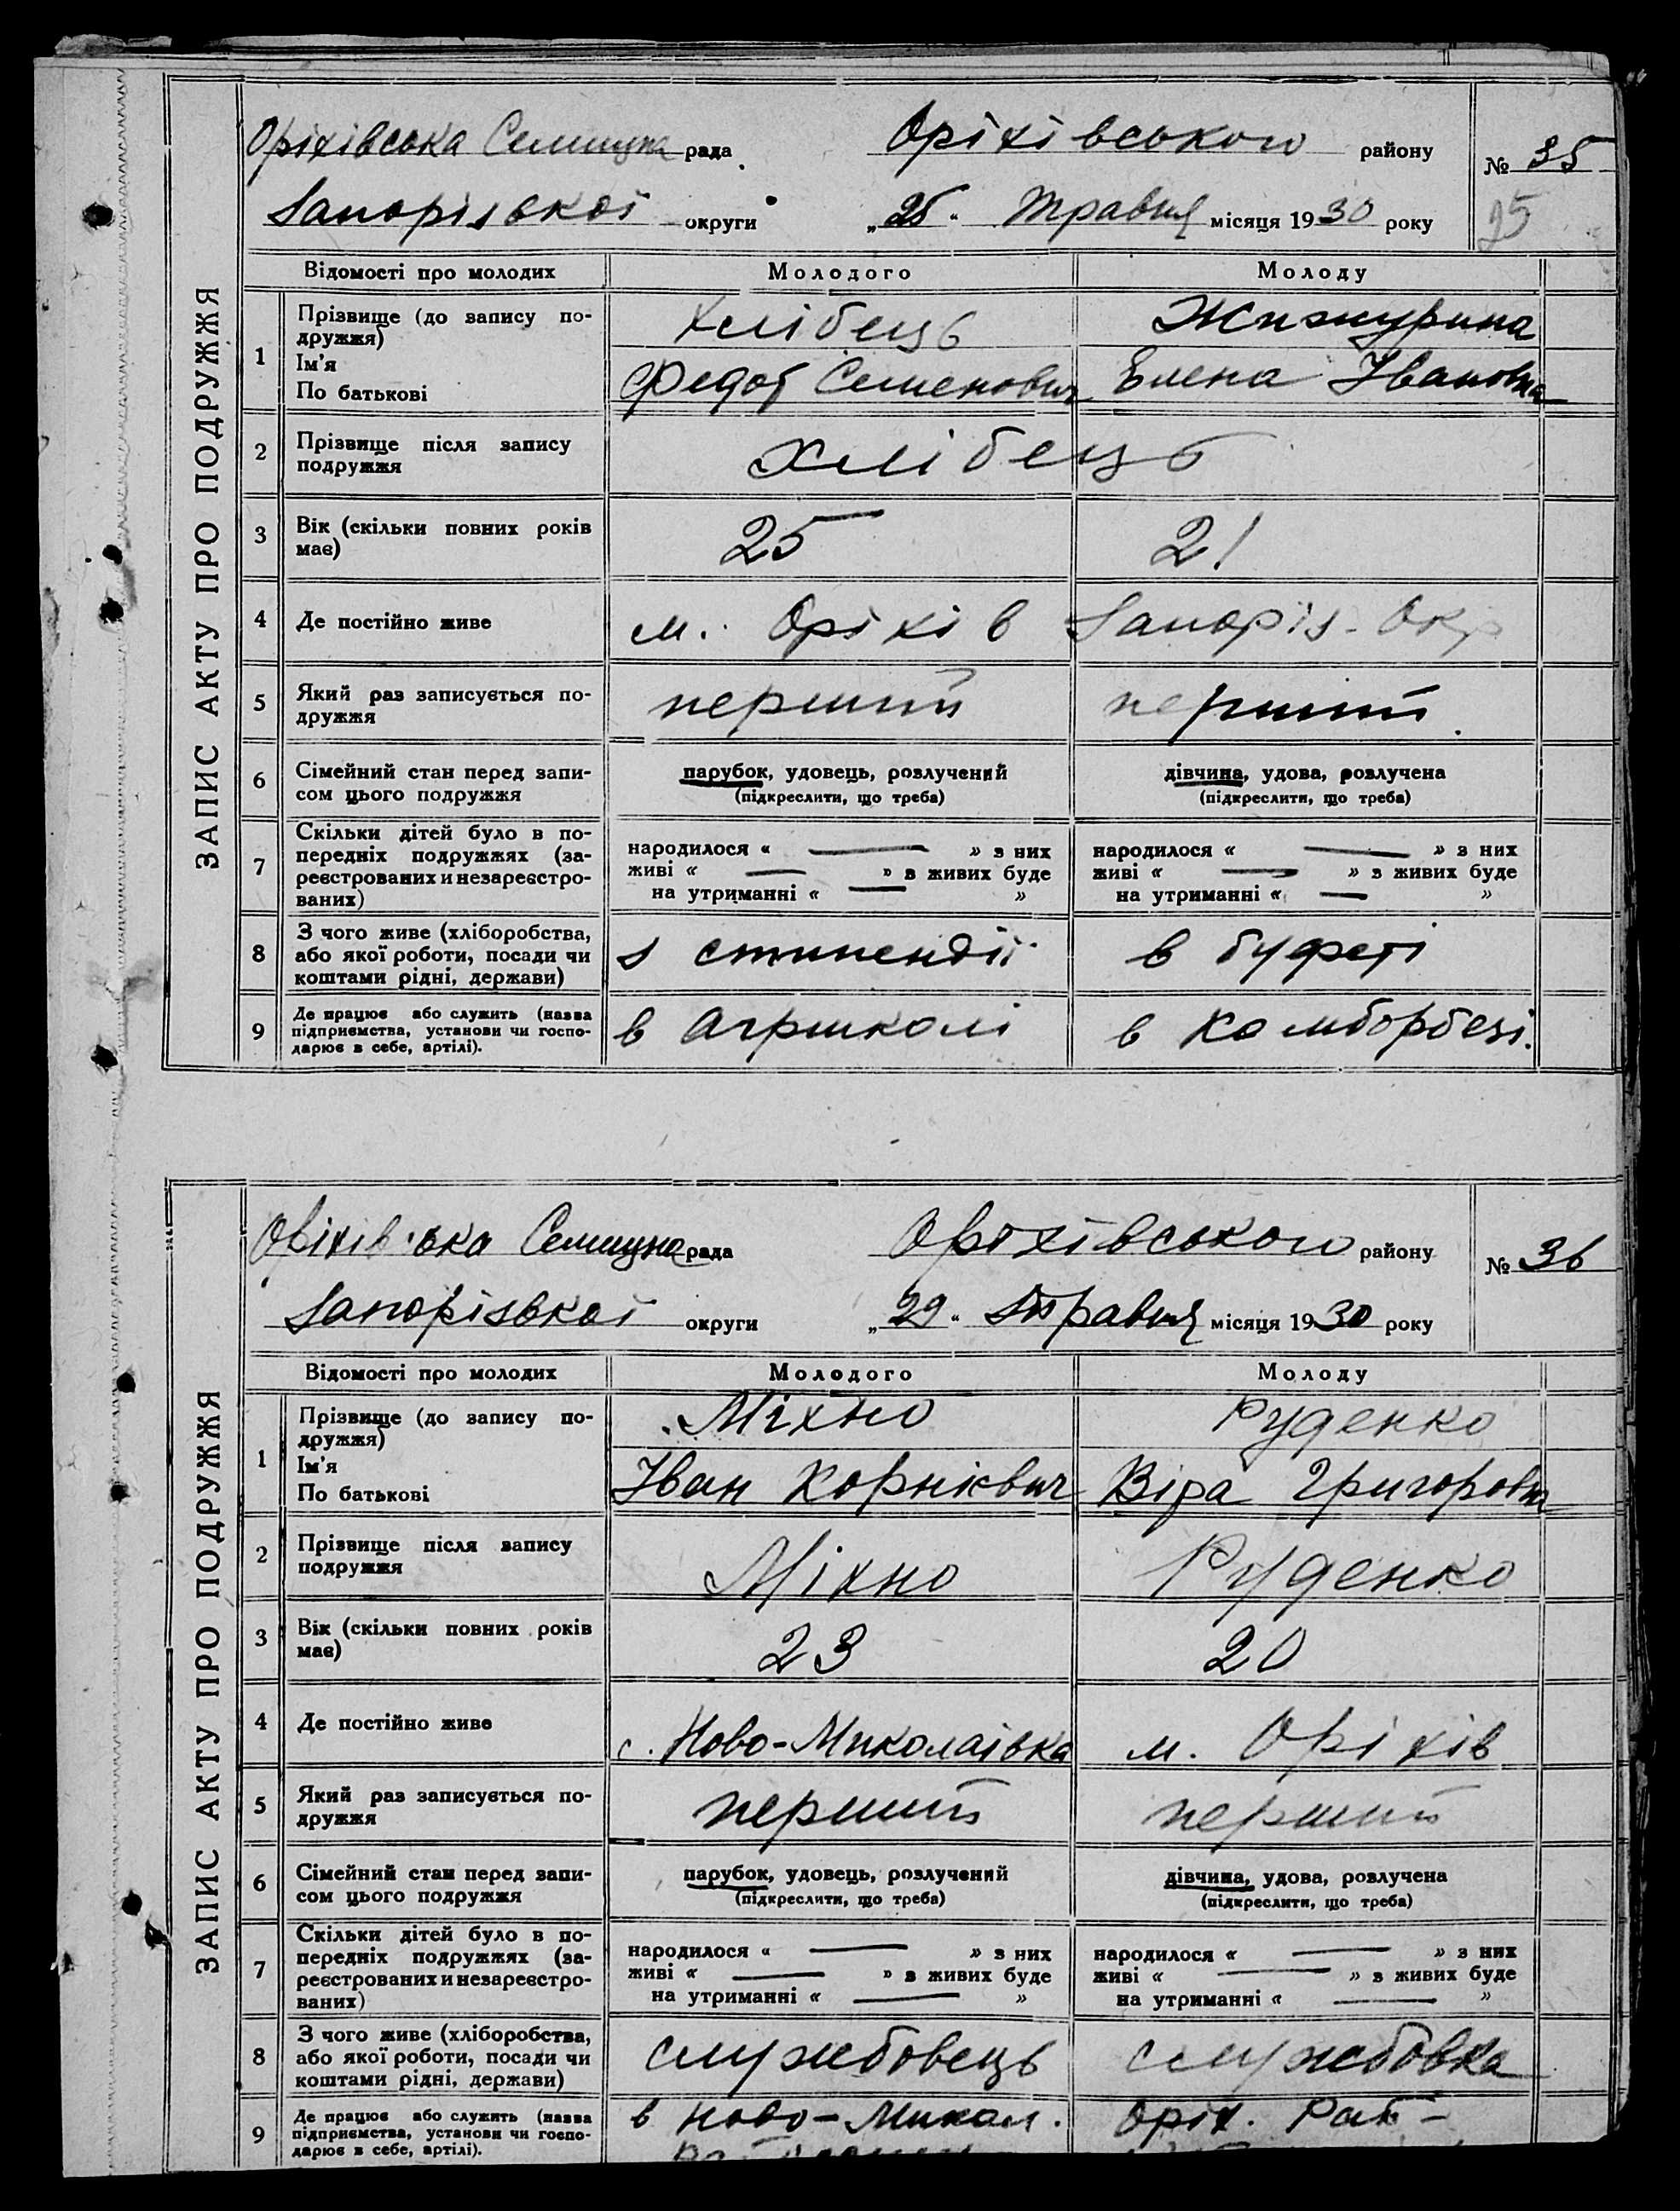 ЗАПИС АКТУ ПРО ПОДРУЖЖЯ
Оріхівська Селищна рада Оріхівського району № 35
Запорізької округи „25“ Травня місяця 1930 року 25
Відомості про молодих Молодого Молоду
1 Прізвище (до запису по-
дружжя)
Ім'я
По батькові
Хлібець Жижурина
Федот Семенович Елена Івановна
2 Прізвище після запису
подружжя
Хлібець
3 Вік (скільки повних років
має)
25 21
4 Де постійно живе м. Оріхів Запоріз. Окр
5 Який раз записується по-
дружжя
перший перший
6 Сімейний стан перед запи-
сом цього подружжя
парубок, удовець, розлучений дівчина, удова, розлучена
(підкреслити, що треба) (підкреслити, що треба)
7 Скільки дітей було в по-
передніх подружжях (за-
реєстрованих и незареєстро-
ваних)
народилося « — » з них народилося « — » з них
живі « — » з живих буде живі « — » з живих буде
на утриманні « — » на утриманні « — »
8 З чого живе (хліборобства,
або якої роботи, посади чи
коштами рідні, держави)
з стипендії в буфеті
9 Де працює або служить (назва
підприємства, установи чи госпо-
дарює в себе, артілі).
в Агршколі в Комборбезі.
ЗАПИС АКТУ ПРО ПОДРУЖЖЯ
Оріхівська Селищна рада Оріхівського району № 36
Запорізької округи „29“ Травня місяця 1930 року
Відомості про молодих Молодого Молоду
1 Прізвище (до запису по-
дружжя)
Ім'я
По батькові
Міхно Руденко
Іван Корнієвич Віра Григоровна
2 Прізвище після запису
подружжя
Міхно Руденко
3 Вік (скільки повних років
має)
23 20
4 Де постійно живе с. Ново-Миколаівка м. Оріхів
5 Який раз записується по-
дружжя
перший перший
6 Сімейний стан перед запи-
сом цього подружжя
парубок, удовець, розлучений дівчина, удова, розлучена
(підкреслити, що треба) (підкреслити, що треба)
7 Скільки дітей було в по-
передніх подружжях (за-
реєстрованих и незареєстро-
ваних)
народилося « — » з них народилося « — » з них
живі « — » з живих буде живі « — » з живих буде
на утриманні « — » на утриманні « — »
8 З чого живе (хліборобства,
або якої роботи, посади чи
коштами рідні, держави)
службовець службовка
9 Де працює або служить (назва
підприємства, установи чи госпо-
дарює в себе, артілі).
в Ново-Микол. Оріх. Раб-